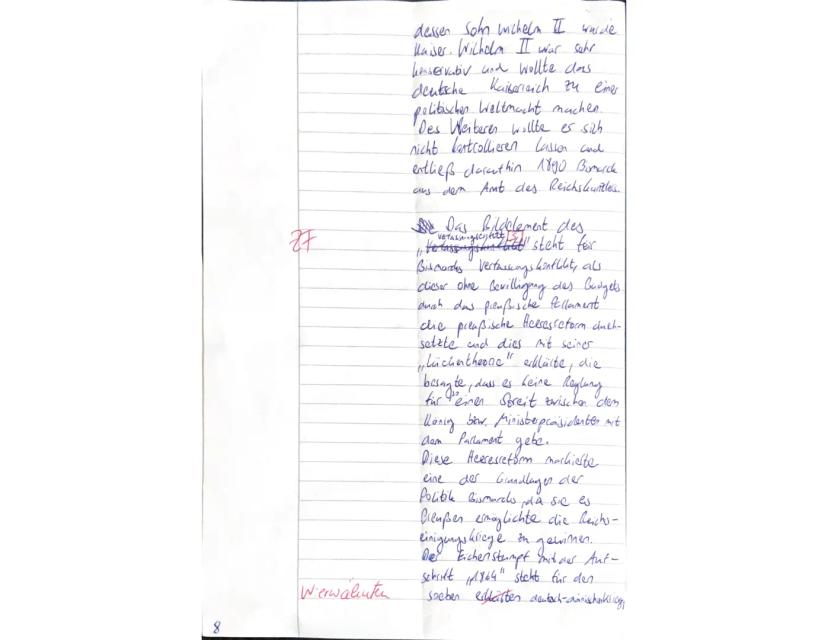 dessen Sohn Wilhelm II wurde
Kaiser. Wilhelm II war sehr
konservativ und wollte das
deutsche Kaiserreich zu einer
politischen Weltmacht machen.
Des Weiteren wollte er sich
nicht kontrollieren lassen und
entließ daraufhin 1890 Bismarck
aus dem Amt des Reichskanzlers.
Das Bildelement des
ZF
„Verfassungs" steht für
Bismarcks Verfassungskonflikt, als
dieser ohne Bewilligung des Budgets
durch das preußische Parlament
die preußische Heeresreform durch-
setzte und dies mit seiner
„Lückentheorie" erklärte, die
besagte, dass es keine Reglung
für einen Streit zwischen dem
König bzw. Ministerpräsidenten mit
dem Parlament gebe.
Diese Heeresreform markierte
eine der Grundlagen der
Politik Bismarcks, da sie es
Preußen ermöglichte die Reichs-
einigungskriege zu gewinnen.
Der Eichenstumpf mit der Auf-
schrift „1864" steht für den
W erwähnten
soeben deutsch-dänischen Krieg,
8